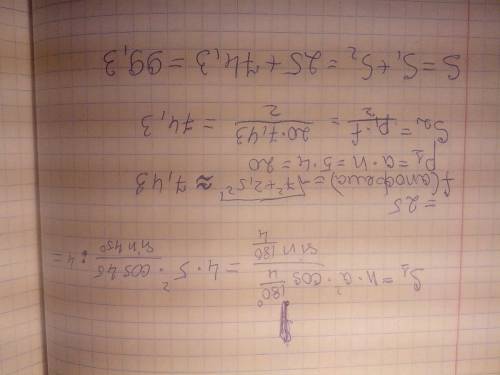 S₁ = n · a² · cos 180°/4 / sin 180/4 = 4 · 5² · cos 45/sin 45° : 4 =
= 25
f(апофема) = √7²+2,5² ≈ 7,43
P₁ = a · n = 5 · 4 = 20
S₂ = P · f/2 = 20 · 7,43/2 = 74,3
S = S₁ + S₂ = 25 + 74,3 = 99,3